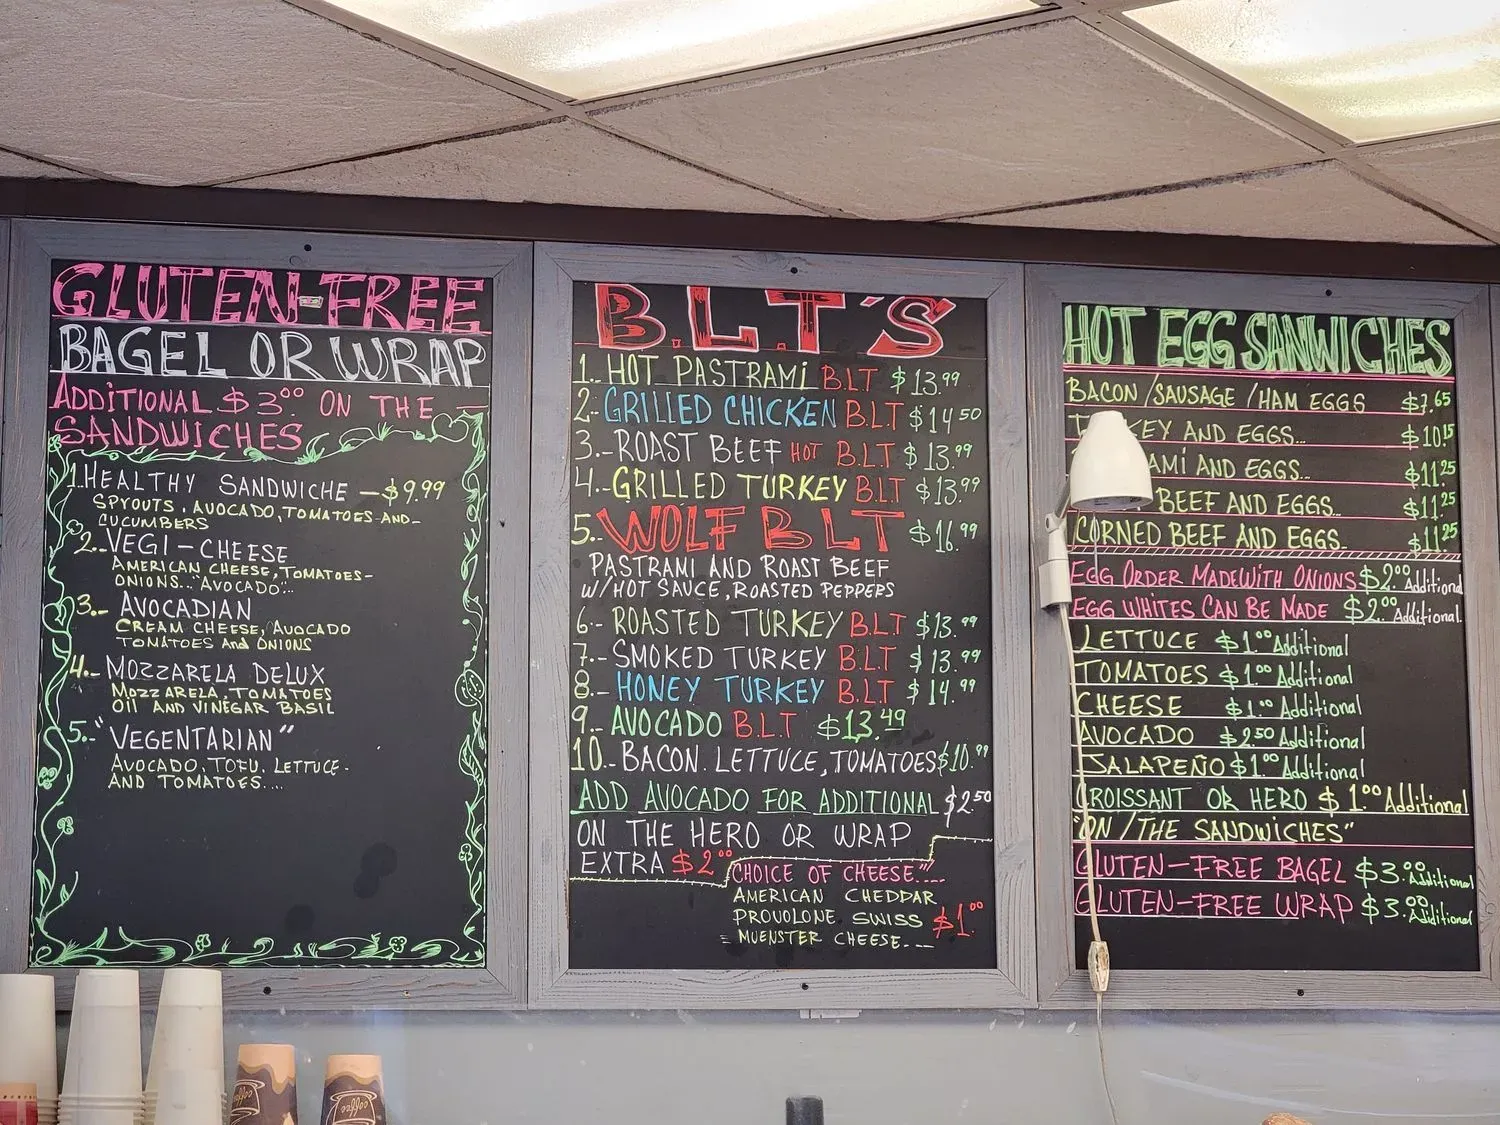 GLUTEN-FREE
BAGEL OR WRAP
ADDITIONAL $3.00 ON THE
SANDWICHES
1. HEALTHY SANDWICHE - $9.99
SPYOUTS, AVOCADO, TOMATOES AND-
CUCUMBERS
2.- VEGI - CHEESE
AMERICAN CHEESE, TOMATOES-
ONIONS... AVOCADO...
3.- AVOCADIAN
CREAM CHEESE, AVOCADO
TOMATOES And ONIONS
4.- MOZZARELA DELUX
MOZZARELA, TOMATOES
OIL AND VINEGAR BASIL
5.- "VEGENTARIAN"
AVOCADO, TOFU, LETTUCE-
AND TOMATOES....
B.L.T'S
1.- HOT PASTRAMI B.L.T $13.99
2- GRILLED CHICKEN B.L.T $14.50
3.- ROAST BEEF HOT B.L.T $13.99
4.- GRILLED TURKEY B.L.T $13.99
5.- WOLF BLT $16.99
PASTRAMI AND ROAST BEEF
W/HOT SAUCE, ROASTED PEPPERS
6.- ROASTED TURKEY B.L.T $13.99
7.- SMOKED TURKEY B.L.T $13.99
8.- HONEY TURKEY B.L.T $14.99
9.- AVOCADO B.L.T $13.49
10.- BACON. LETTUCE, TOMATOES $10.99
ADD AVOCADO FOR ADDITIONAL $2.50
ON THE HERO OR WRAP
EXTRA $2.00
CHOICE OF CHEESE"....
AMERICAN CHEDDAR
PROVOLONE SWISS $1.00
= MUENSTER CHEESE...
HOT EGG SANWICHES
BACON /SAUSAGE /HAM EGGS $7.65
KEY AND EGGS... $10.15
AMI AND EGGS... $11.25
BEEF AND EGGS... $11.25
CORNED BEEF AND EGGS.. $11.25
EGG ORDER MADE WITH ONIONS $2.00 Additional
EGG WHITES CAN BE MADE $2.00 Additional.
LETTUCE $1.00 Additional
TOMATOES $1.00 Additional
CHEESE $1.00 Additional
AVOCADO $2.50 Additional
JALAPEÑO $1.00 Additional
CROISSANT OR HERO $1.00 Additional
"ON /THE SANDWICHES"
GLUTEN-FREE BAGEL $3.00 Additional
GLUTEN-FREE WRAP $3.00 Additional
coffee
coffee